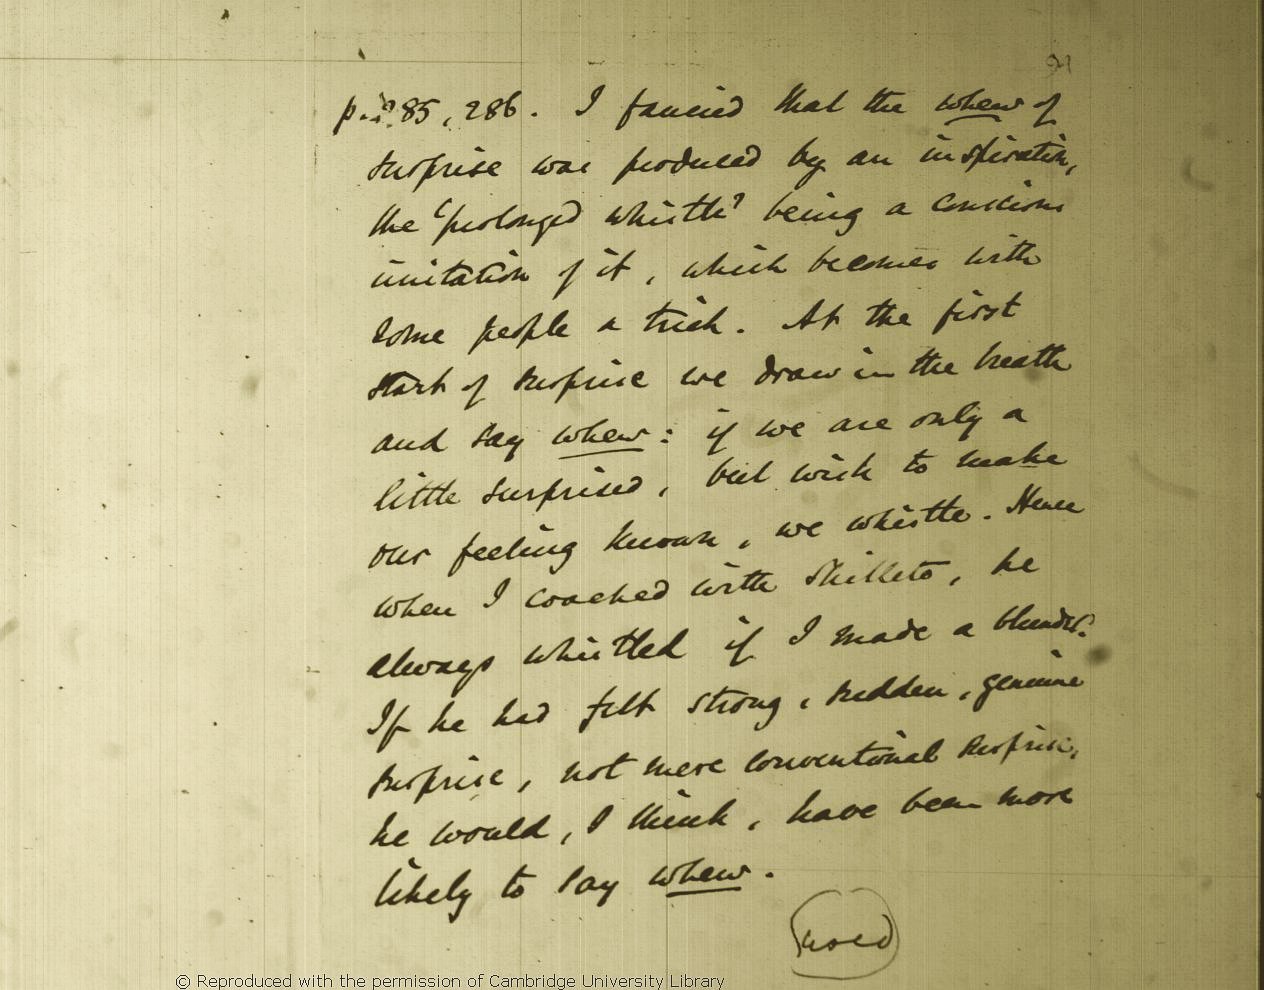 p. 285, 286. I fancied that the whew of
surprise was produced by an inspiration,
the 'prolonged whistle' being a conscious
imitation of it, which becomes with
some people a trick. At the first
start of surprise we draw in the breath
and say whew: if we are only a
little surprised, but wish to make
our feeling known, we whistle. Hence
when I coached with Shilleto, he
always whistled if I made a blunder.
If he had felt strong, sudden, genuine
surprise, not mere conventional surprise,
he would, I think, have been more
likely to say whew.
used
© Reproduced with the permission of Cambridge University Library